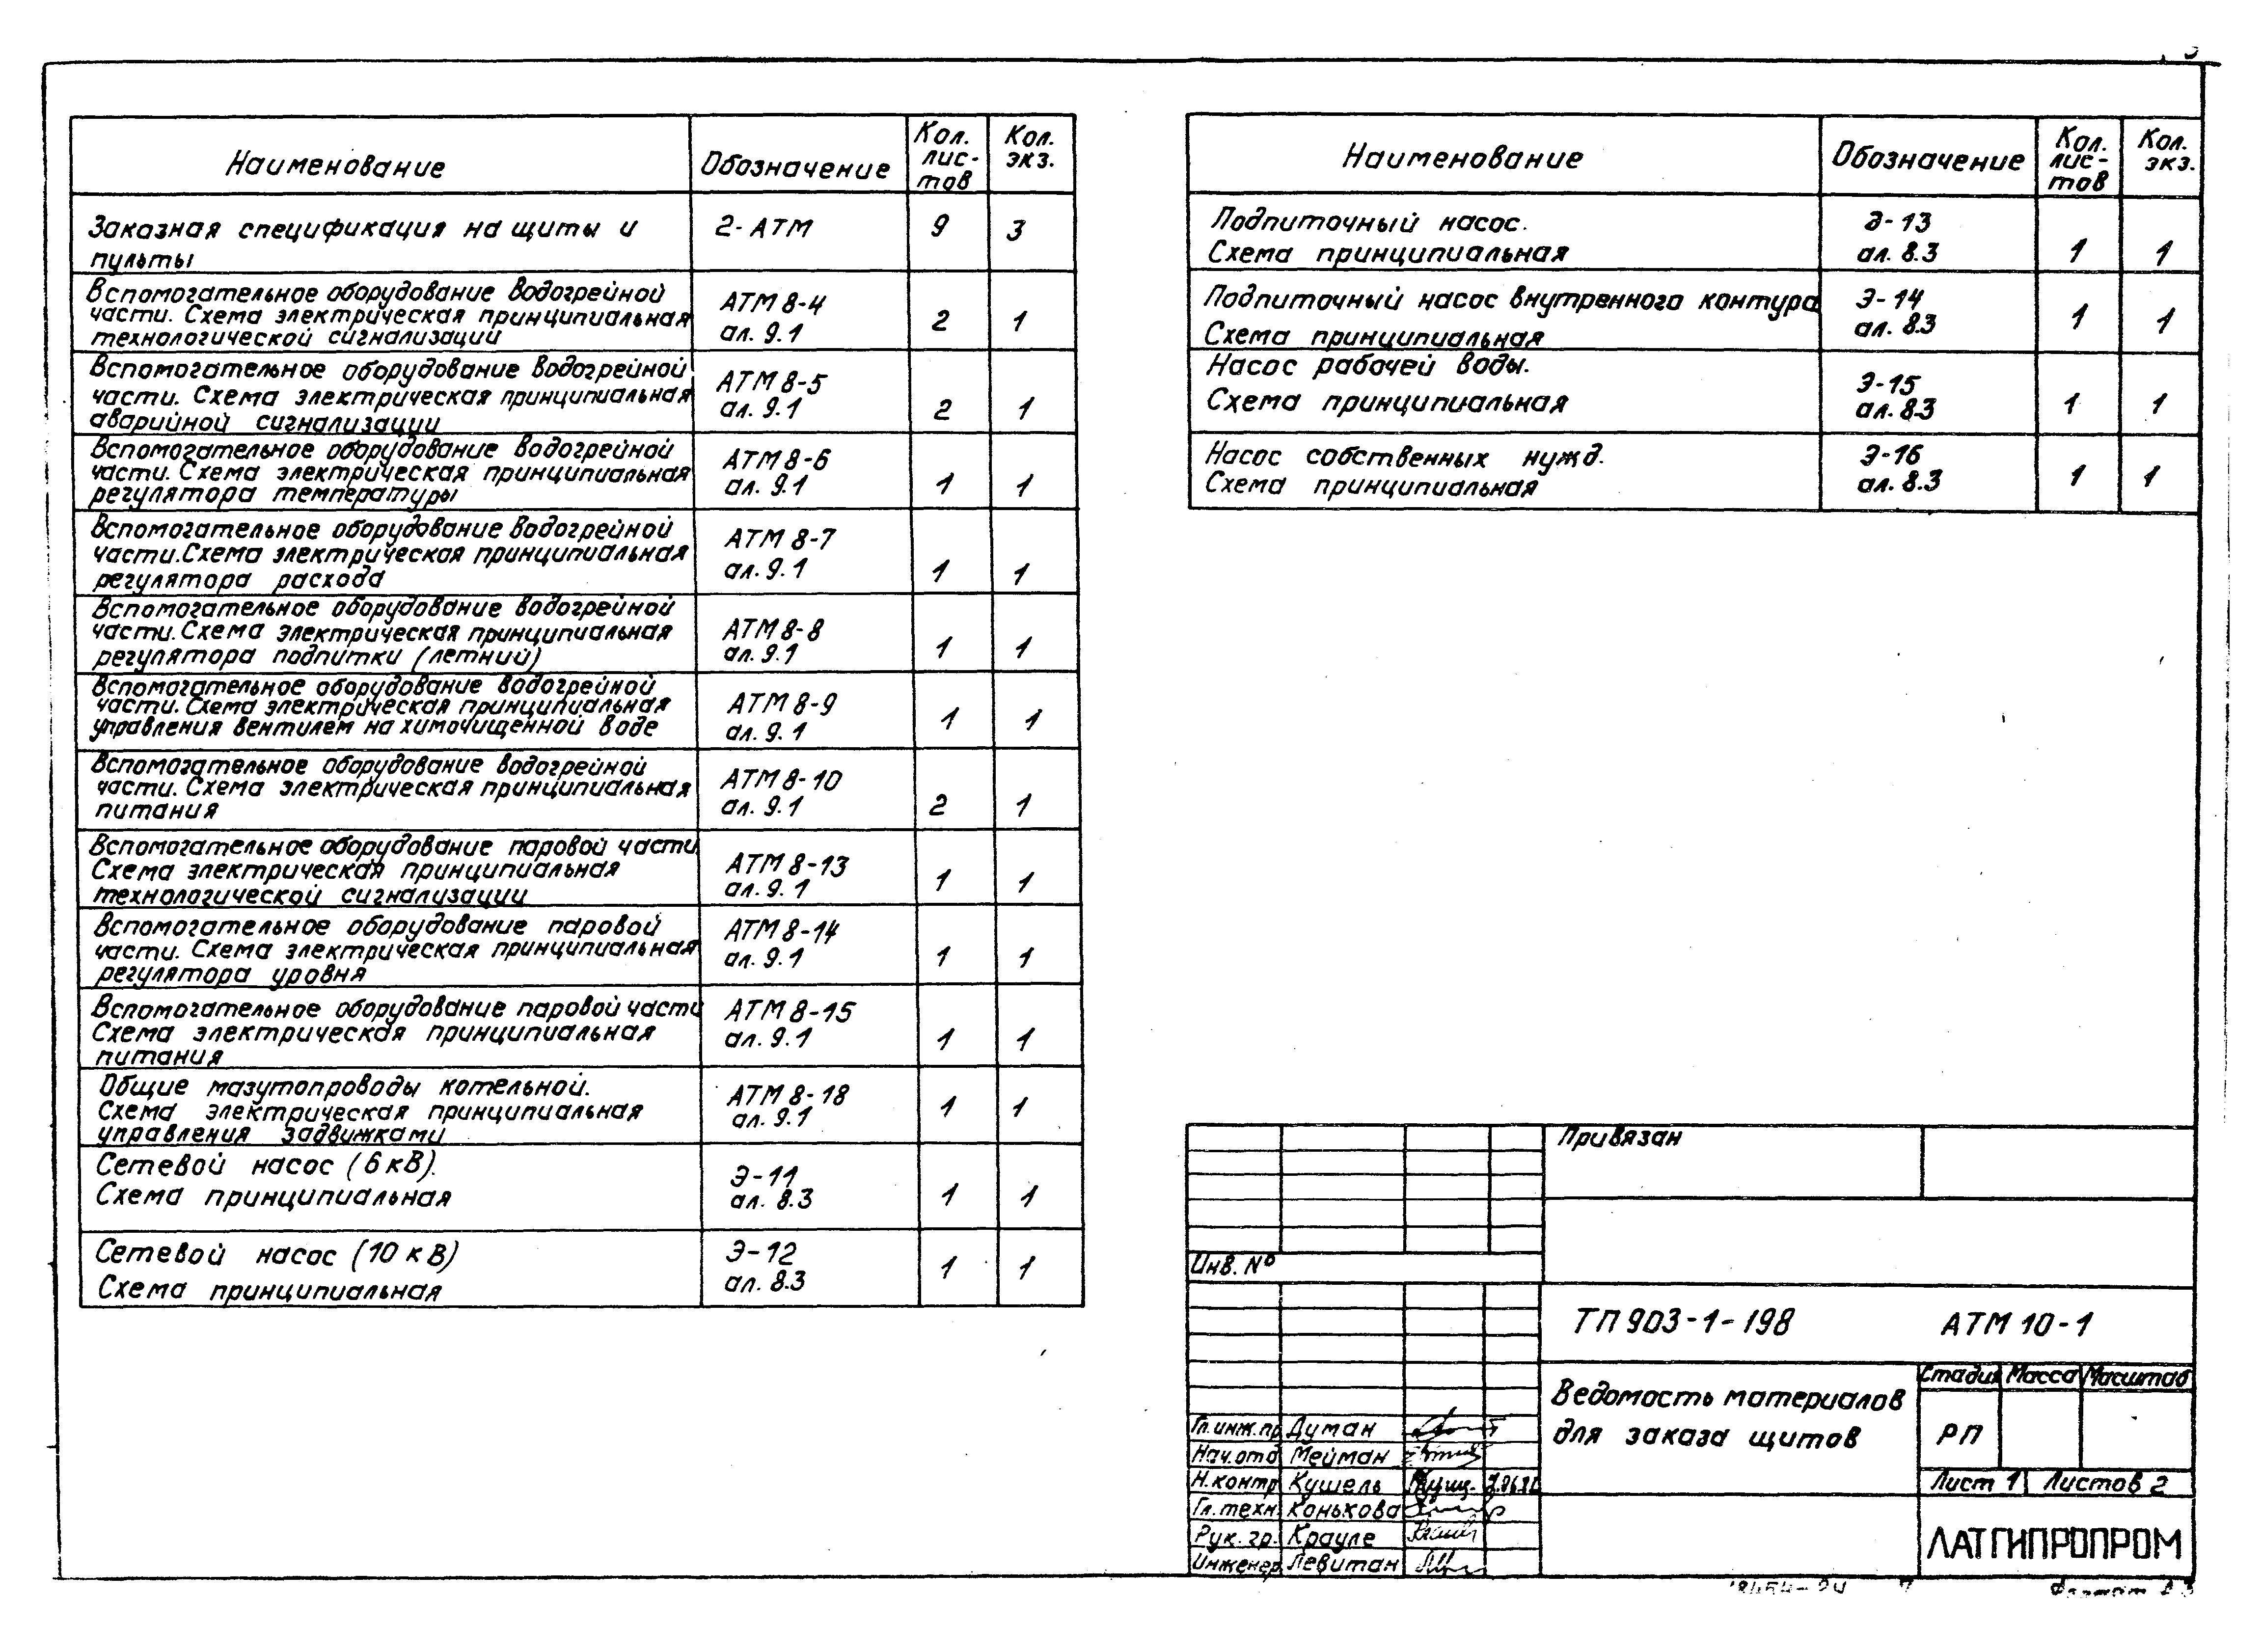 Наименование Обозначение Кол. лис- тов Кол. экз.
Заказная спецификация на щиты и 2-АТМ 9 3
пульты
Вспомогательное оборудование водогрейной
части. Схема электрическая принципиальная АТМ 8-4 2 1
технологической сигнализации ал. 9.1
Вспомогательное оборудование водогрейной
части. Схема электрическая принципиальная АТМ 8-5 2 1
аварийной сигнализации ал. 9.1
Вспомогательное оборудование водогрейной
части. Схема электрическая принципиальная АТМ 8-6 1 1
регулятора температуры ал. 9.1
Вспомогательное оборудование водогрейной
части. Схема электрическая принципиальная АТМ 8-7 1 1
регулятора расхода ал. 9.1
Вспомогательное оборудование водогрейной
части. Схема электрическая принципиальная АТМ 8-8 1 1
регулятора подпитки (летний) ал. 9.1
Вспомогательное оборудование водогрейной
части. Схема электрическая принципиальная АТМ 8-9 1 1
управления вентилем на химочищенной воде ал. 9.1
Вспомогательное оборудование водогрейной
части. Схема электрическая принципиальная АТМ 8-10 2 1
питания ал. 9.1
Вспомогательное оборудование паровой части.
Схема электрическая принципиальная АТМ 8-13 1 1
технологической сигнализации ал. 9.1
Вспомогательное оборудование паровой
части. Схема электрическая принципиальная АТМ 8-14 1 1
регулятора уровня ал. 9.1
Вспомогательное оборудование паровой части
Схема электрическая принципиальная АТМ 8-15 1 1
питания ал. 9.1
Общие мазутопроводы котельной.
Схема электрическая принципиальная АТМ 8-18 1 1
управления задвижками ал. 9.1
Сетевой насос (6 кВ). Э-11
Схема принципиальная ал. 8.3 1 1
Сетевой насос (10 кВ) Э-12
Схема принципиальная ал. 8.3 1 1
Наименование Обозначение Кол. лис- тов Кол. экз.
Подпиточный насос. Э-13
Схема принципиальная ал. 8.3 1 1
Подпиточный насос внутренного контура Э-14
Схема принципиальная ал. 8.3 1 1
Насос рабочей воды. Э-15
Схема принципиальная ал. 8.3 1 1
Насос собственных нужд. Э-16
Схема принципиальная ал. 8.3 1 1
Привязан
Инв. №
ТП 903-1-198 АТМ 10-1
Ведомость материалов
для заказа щитов
Стадия Масса Масштаб
РП
Лист 1 Листов 2
ЛАТГИПРОПРОМ
Гл. инж. пр Думан
Нач. отд Мейман
Н. контр Кушель
Гл. техн. Конькова
Рук. гр. Крауле
Инженер Левитан
Формат А3